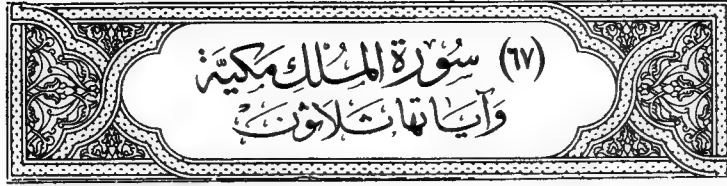 (٦٧) سُوْرَةِ المُلْكِ مَكِيَّة
وَآيَاتهَا ثَلَاثُونَ